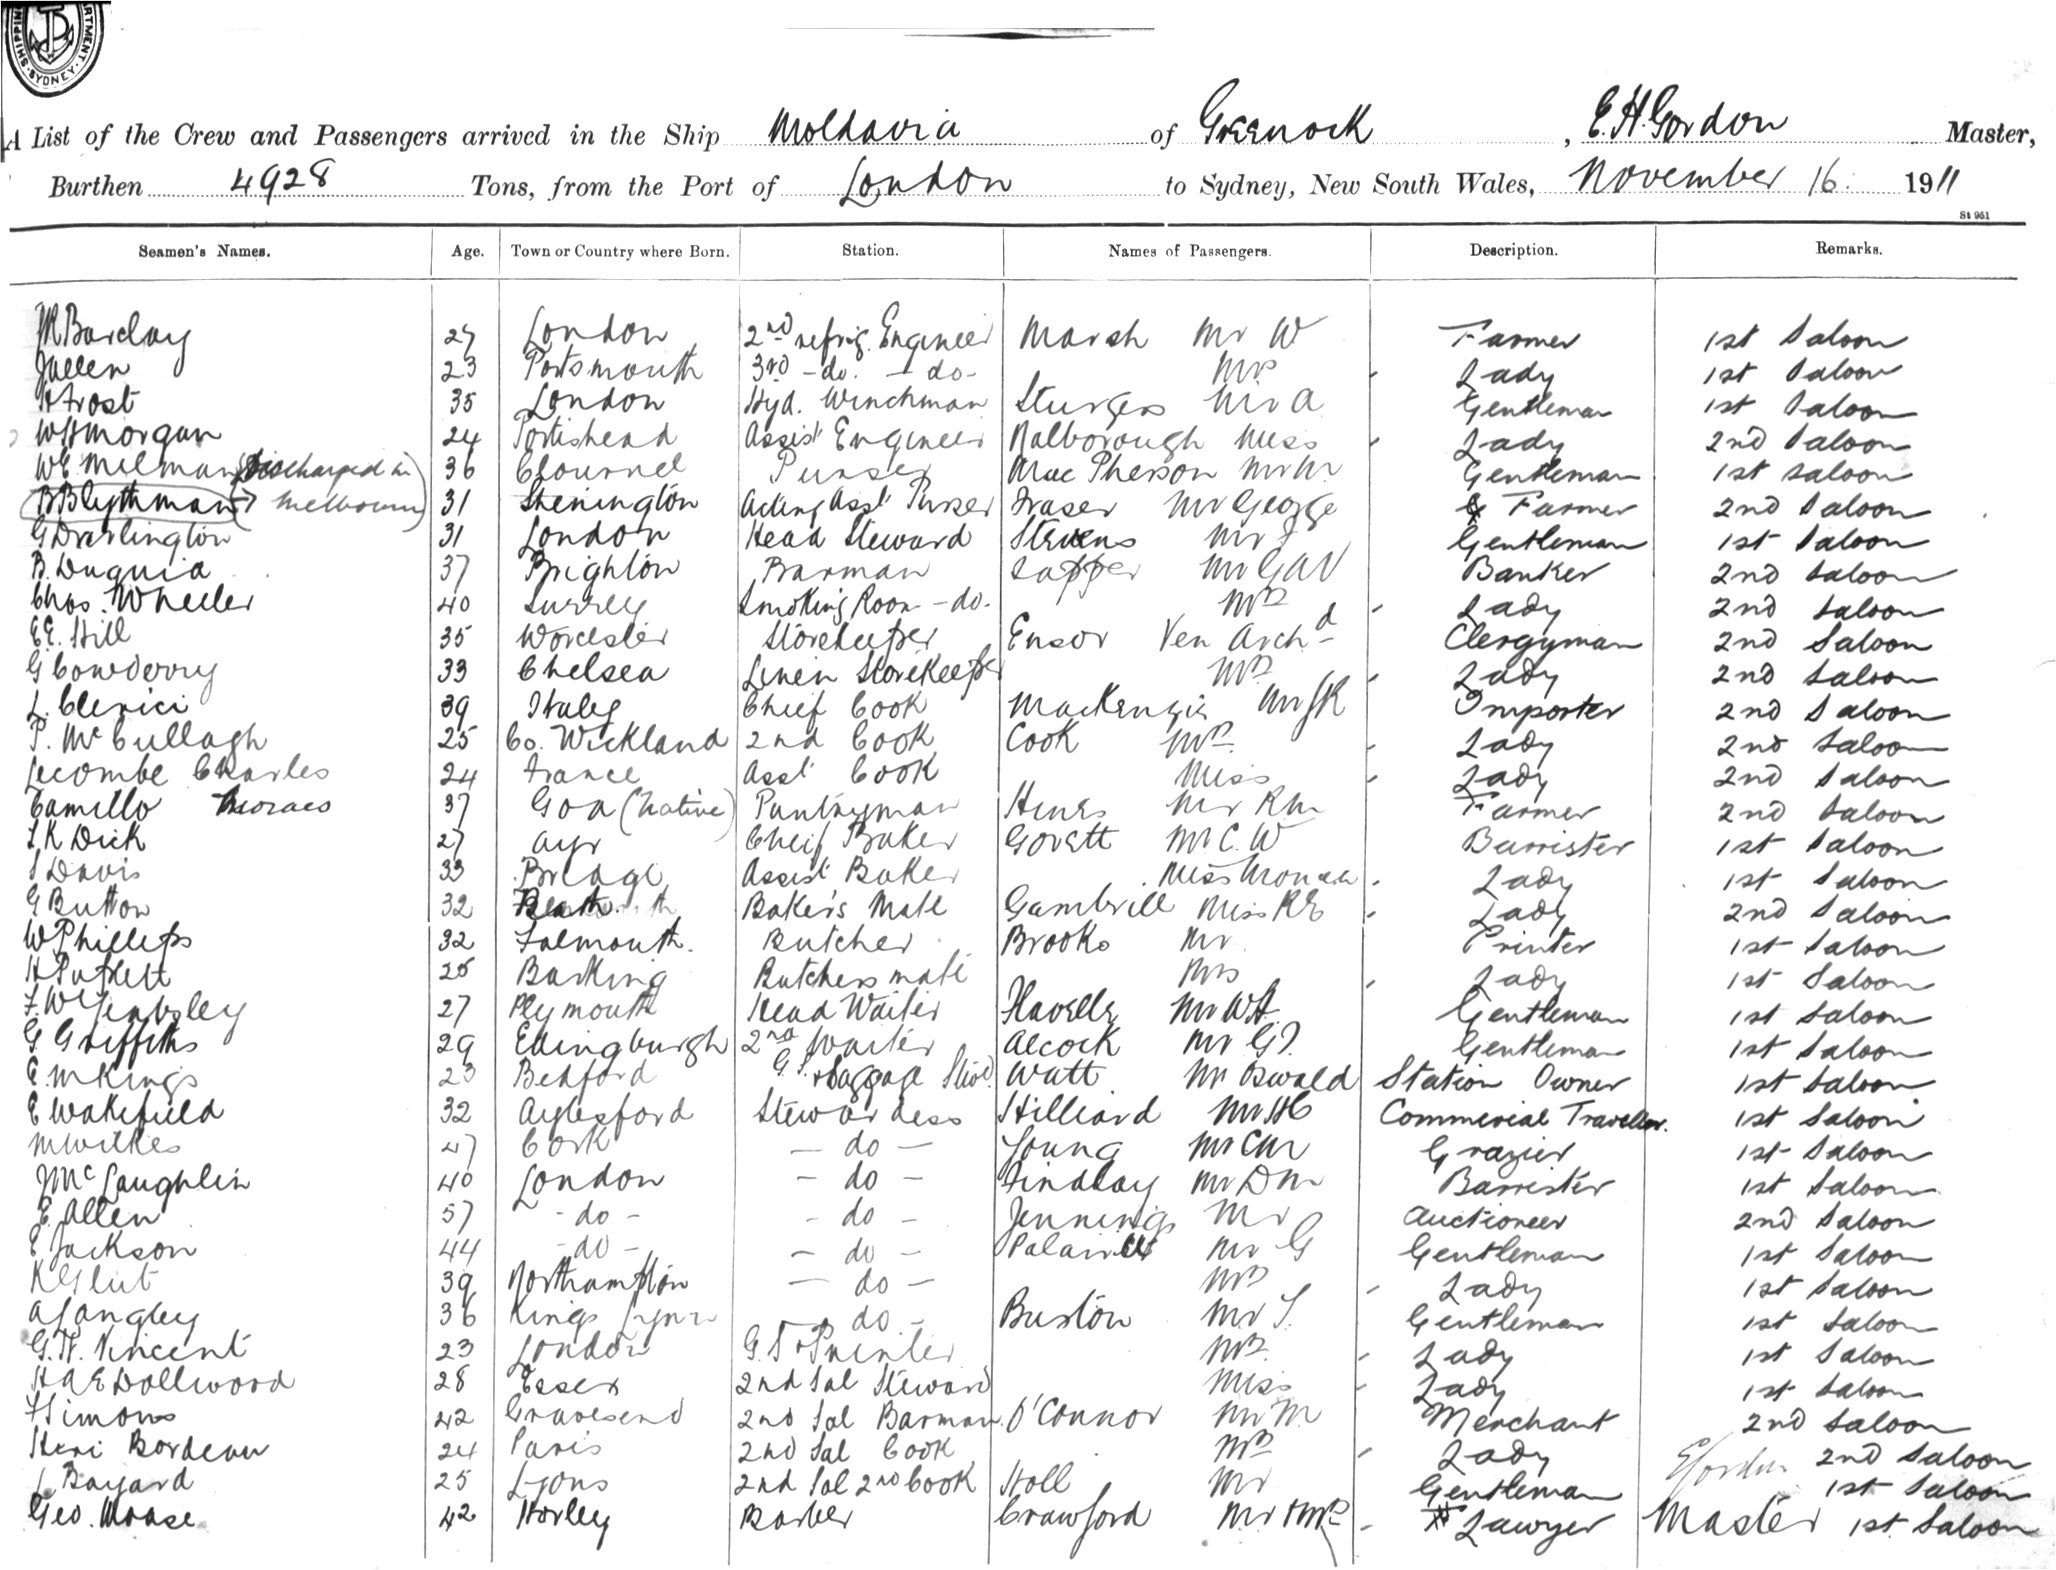 SHIPPING DEPARTMENT. SYDNEY.
A List of the Crew and Passengers arrived in the Ship Moldavia of Greenock, E.H. Gordon Master,
Burthen 4928 Tons, from the Port of London to Sydney, New South Wales, November 16. 1911
St 951
Seamen's Names. Age. Town or Country where Born. Station. Names of Passengers. Description. Remarks.
Barclay 27 London 2nd refrig. Engineer Marsh Mr W Farmer 1st Saloon
J Allen 23 Portsmouth 3rd - do. - do - Mrs Lady 1st Saloon
H Frost 35 London Hyd. Winchman Sturgess Mr A Gentleman 1st Saloon
W H Morgan 24 Portishead Assist Engineer Malborough Miss Lady 2nd Saloon
W E Milman (Discharged in 36 Purser Mac Pherson Mr M Gentleman 1st Saloon
B Blythman Melbourne) 31 Shenington Acting Asst Purser Fraser Mr George Farmer 2nd Saloon
G Darlington 31 London Head Steward Stevens Mr J Gentleman 1st Saloon
B. Duguia 37 Brighton Barman Sapper Mr G A V Banker 2nd Saloon
Chas. Wheeler 40 Surrey Smoking Room - do - Mrs Lady 2nd Saloon
E E. Hill 35 Worcester Storekeeper Ensor Ven Archd Clergyman 2nd Saloon
G Cowderoy 33 Chelsea Linen Storekeeper Mrs Lady 2nd Saloon
L. Clerici 39 Italy Chief Cook MacKenzie Mr J K Importer 2nd Saloon
P. McCullagh 25 Co. Wickland 2nd Cook Cook Mrs Lady 2nd Saloon
Lecombe Charles 24 France Asst Cook Miss Lady 2nd Saloon
Camillo Moraes 37 Goa (Native) Puntryman Hines Mr R M Farmer 2nd Saloon
Dick 27 Ayr Cheif Baker Govett Mr C. W Barrister 1st Saloon
S Davis 33 Breage Assist Baker Miss Lady 1st Saloon
G Button 32 Baker's Mate Gambrill Miss R E Lady 2nd Saloon
W Phillips 32 Falmouth. Butcher Brooks Mr Printer 1st Saloon
H Puplett 25 Barking Butchers mate Mrs Lady 1st Saloon
F. W 27 Plymouth Head Waiter Havelly Mr W H Gentleman 1st Saloon
G. Griffiths 29 Edingburgh 2nd Waiter Alcock Mr G Gentleman 1st Saloon
E. M Kings 23 Bedford G.S. + Baggage Stwd Watt Mr Oswald Station Owner 1st Saloon
E Wakefield 32 Aylesford Stewardess Hilliard Mr H C Commercial Traveller. 1st Saloon
M Wilkes 47 Cork - do - Young Mr C M Grazier 1st Saloon
J McLaughlin 40 London - do - Findlay Mr D M Barrister 1st Saloon
E. Allen 57 - do - - do - Jennings Mr Auctioneer 2nd Saloon
E Jackson 44 - do - - do - Palairet Mr G Gentleman 1st Saloon
K Glut 39 Northampton - do - Mrs Lady 1st Saloon
A Langley 36 Kings Lynn - do - Burton Mr S. Gentleman 1st Saloon
G. W. Vincent 23 London G. S + Printer Mrs Lady 1st Saloon
H A E Dollwood 28 Essex 2nd Sal Steward Miss Lady 1st Saloon
F Simons 42 Gravesend 2nd Sal Barman O'Connor Mr M Merchant 2nd Saloon
Henri Bordeau 24 Paris 2nd Sal Cook Mrs Lady 2nd Saloon
L Bayard 25 Lyons 2nd Sal 2nd Cook Holl Mr Gentleman E Gordon 1st Saloon
Geo. Moase 42 Horley Barber Crawford Mr + Mrs Lawyer Master 1st Saloon